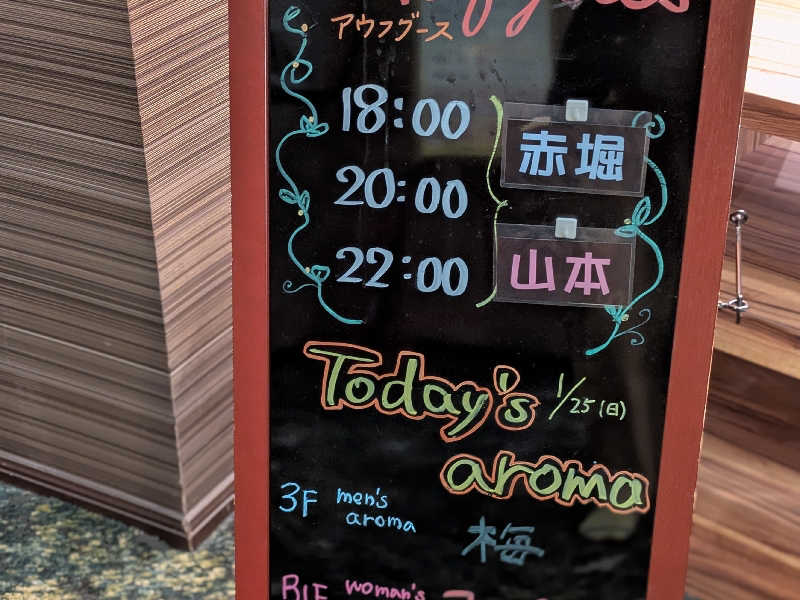 アウフグース
18:00
20:00
22:00
赤堀
山本
Today's 1/25(日)
aroma
3F men's
aroma
梅
B1F woman's